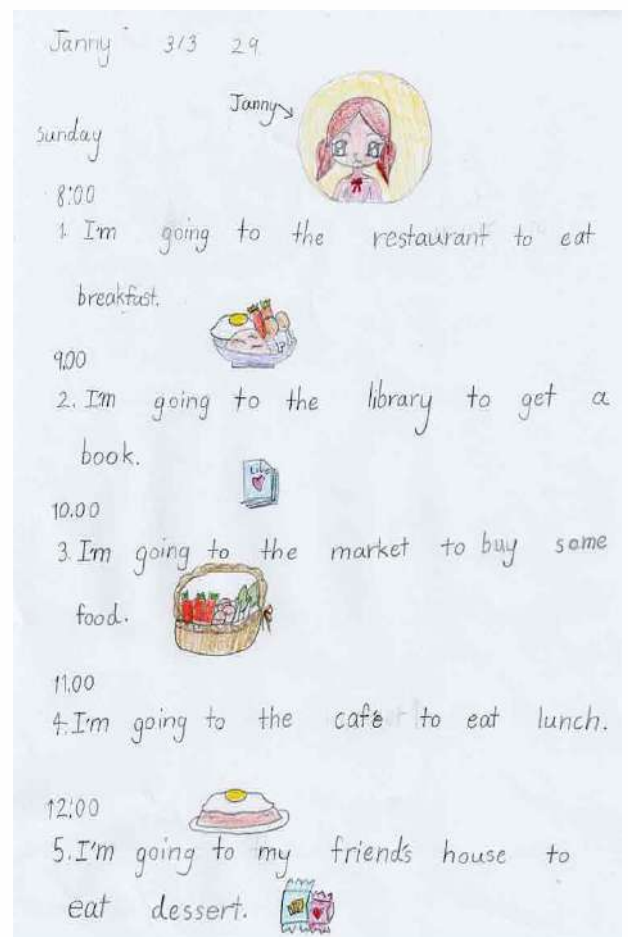 Janny 3/3 29
Janny
Sunday
8:00
1. I'm going to the restaurant to eat
breakfast.
9.00
2. I'm going to the library to get a
book.
10.00
3. I'm going to the market to buy some
food.
11.00
4. I'm going to the café to eat lunch.
12:00
5. I'm going to my friend's house to
eat dessert.